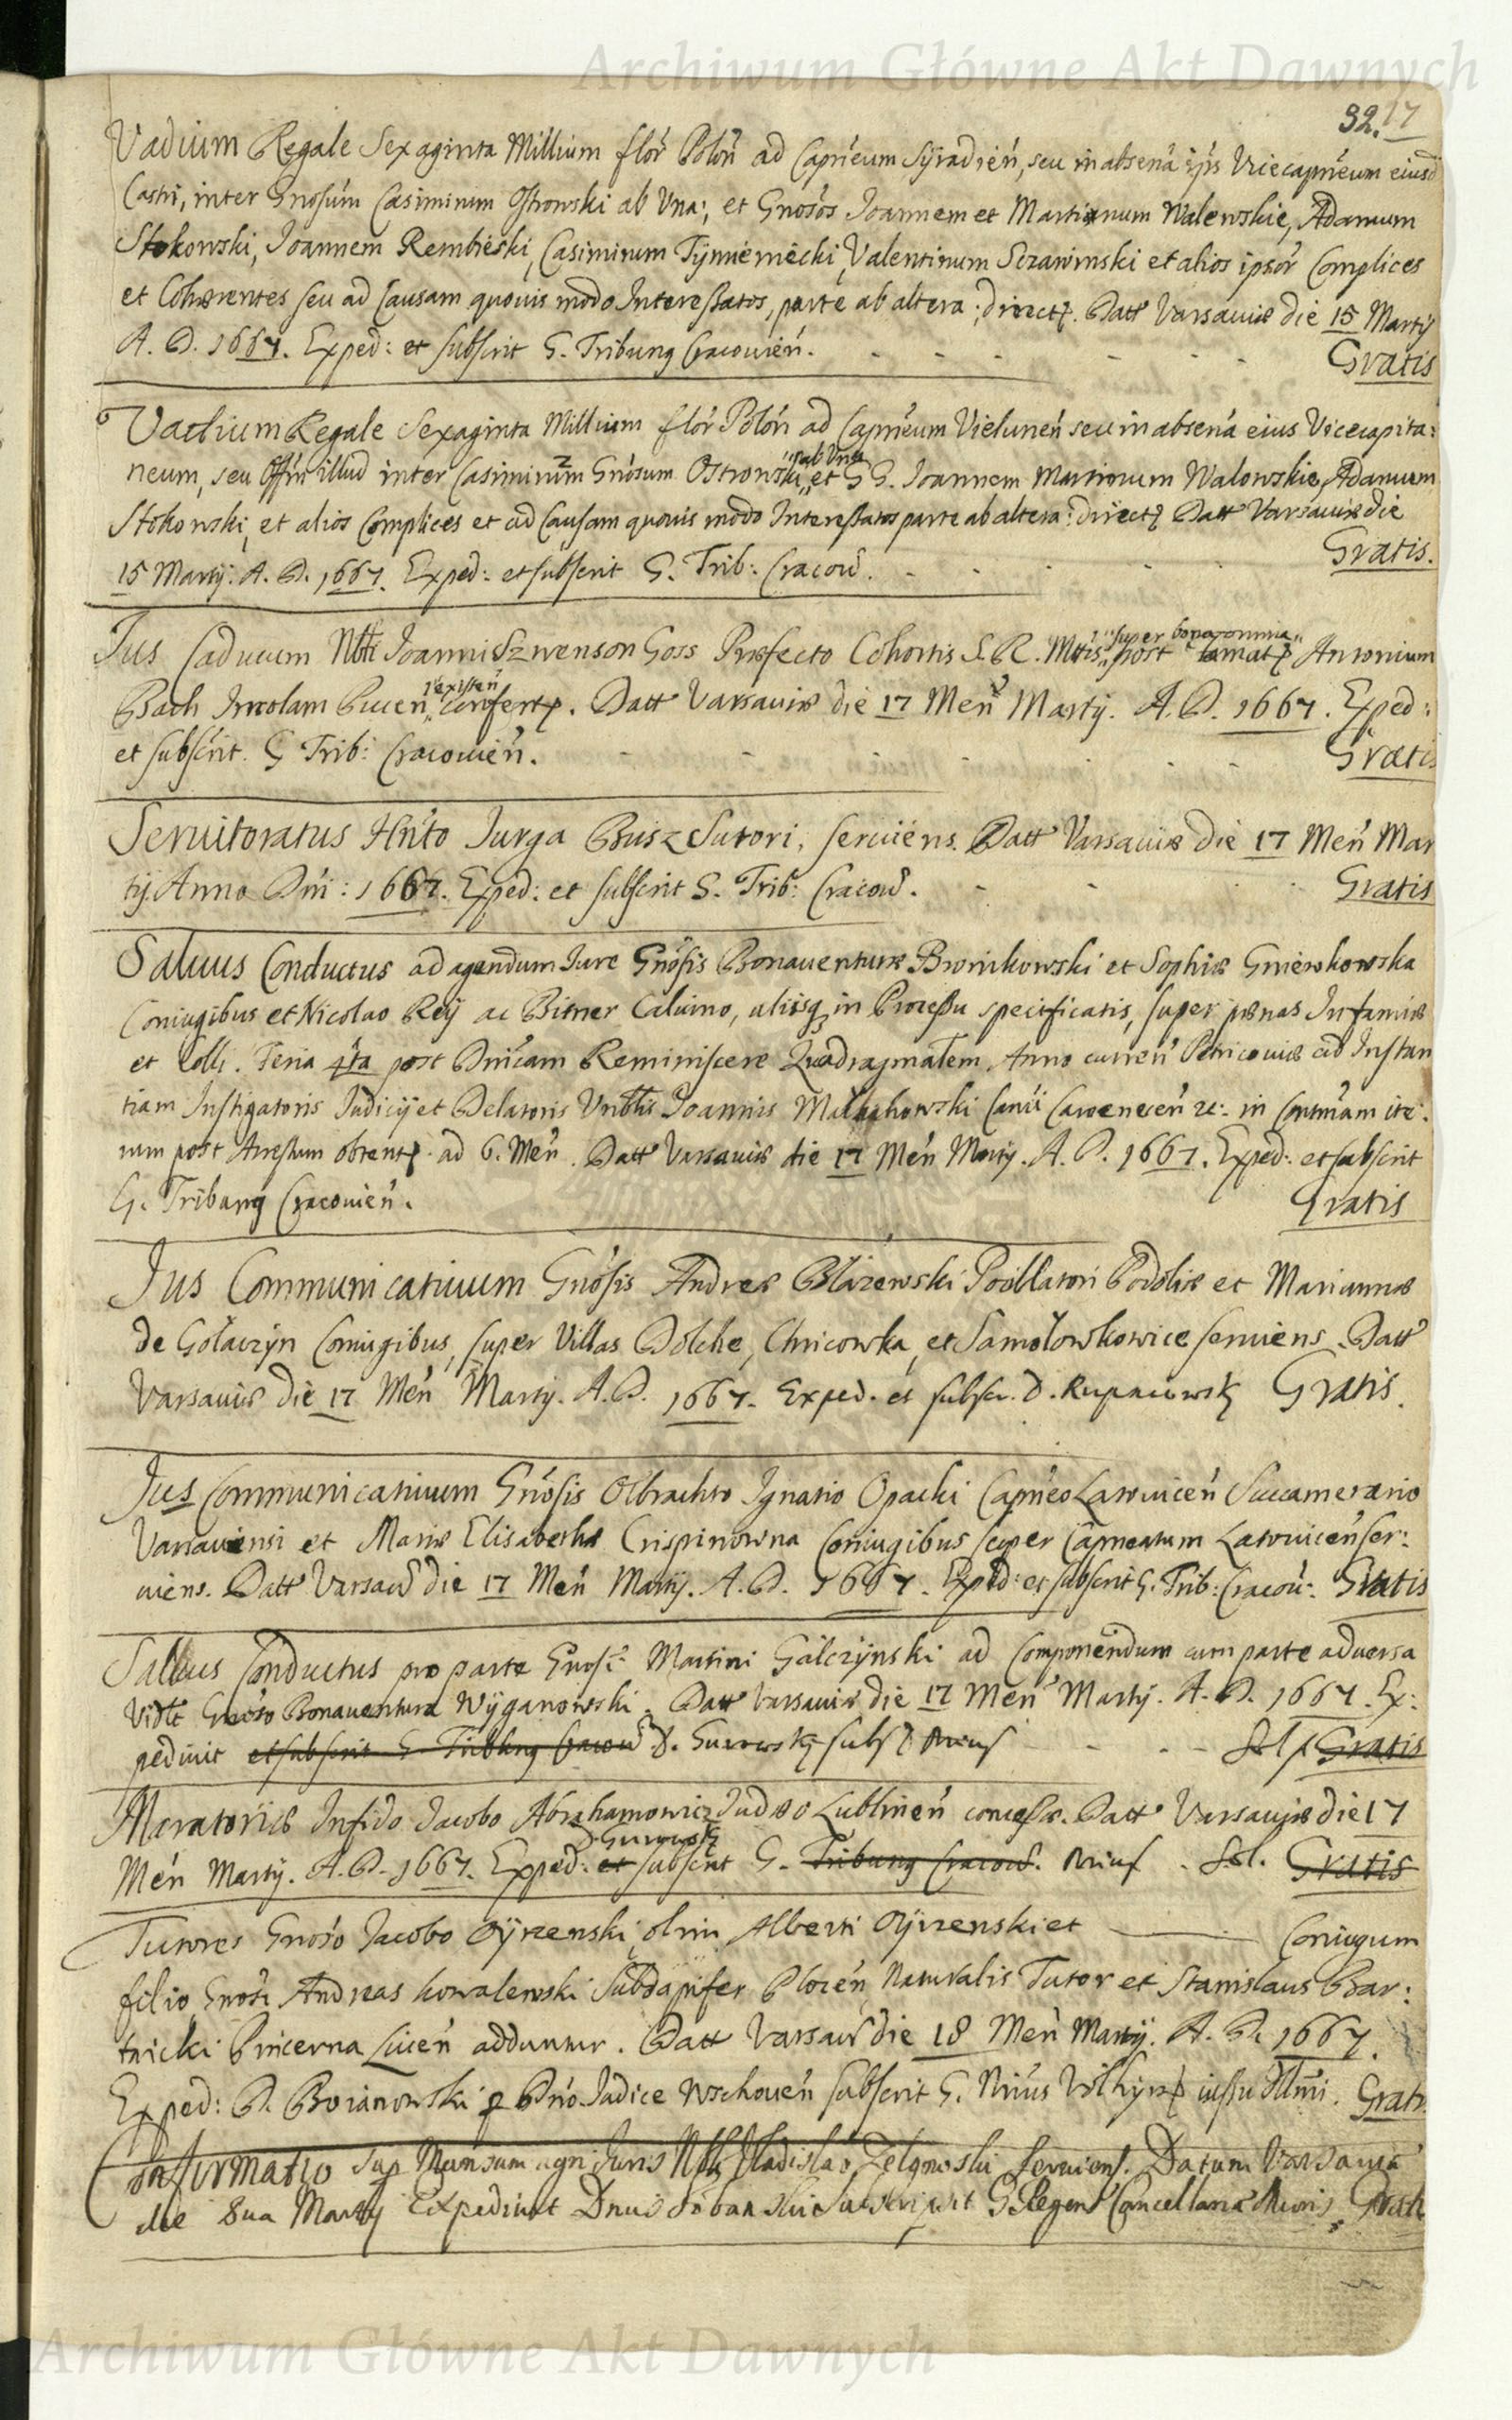 Archiwum Główne Akt Dawnych
32. 17
Vadium Regale Sexaginta Millium flor Polon ad Capneum Syradien, seu in absena ips Vicecapneum eiusd
Castri, inter Gnosum Casimirum Ostrowski ab Vna; et Gnosos Joannem et Martianum Walewskie, Adamum
Stokowski, Joannem Rembieski, Casimirum Tymieniecki, Valentinum Sczawinski et alios ipsor Complices
et Cohærentes seu ad Causam quouis modo Interessatos, parte ab altera; direct. Datt Varsauiæ die 15 Martij
A. D. 1667. Exped: et subscrit G. Tribung Cracouien. Gratis
Vadium Regale Sexaginta Millium flor Polon ad Capneum Vielunen seu in absena eius Vicecapita:
neum, seu Offm illud inter Casimirum Gnosum Ostrowski, ab Vna et GG. Joannem Martianum Walowskie, Adamum
Stokowski, et alios Complices et ad Causam quouis modo Interessatos parte ab altera: direct Datt Varsauiæ die
15 Martij. A. D. 1667. Exped: et subscrit G. Trib: Cracou. Gratis.
Jus Caducum Nbli Joanni Szwenson Goss Præfecto Cohortis S. R. Mtis, super bona omnia post Antonium
Bach Incolam Pucen existen confert. Datt Varsauiæ die 17 Men Martij. A. D. 1667. Exped:
et subscrit. G Trib: Cracouien. Gratis
Seruitoratus Hnto Jurga Busz Sutori, seruiens. Datt Varsauiæ die 17 Men Mar
tij. Anno Dni: 1667. Exped: et subscrit G. Trib: Cracou. Gratis
Saluus Conductus ad agendum Jure Gnosis Bonauenturæ Bronikowski et Sophiæ Gniewkowska
Coniugibus et Nicolao Rey ac Bitner Caluino, aliisq in Processu specificatis, super pænas Infamiæ
et Colli. Feria 4ta post Dnicam Reminiscere Quadragmalem Anno curren Petricouiæ ad Instan
tiam Instigatoris Judicij et Delatoris Vnblis Joannis Małachowski in Contmam ite:
rum post Arrestum obtent. ad 6. Men. Datt Varsauiæ die 17 Men Martij. A. D. 1667. Exped: et subscrit
G. Tribung Cracouien. Gratis
Jus Communicatiuum Gnosis Andreæ Błażewski Pocillatori Podoliæ et Mariannæ
de Gołaczyn Coniugibus, super Villas Dolche, Chricowka, et Samołowkowice seruiens. Datt
Varsauiæ die 17 Men Martij. A. D. 1667. Exped. et subscr. D. Gratis.
Jus Communicatiuum Gnosis Olbrachto Ignatio Opacki Capneo Latouicen Succamerario
Varsauiensi et Mariæ Elisabethæ Crispinowna Coniugibus super Capneatum Latouicen ser:
uiens. Datt Varsau die 17 Men Martij. A. D. 1667. Exped: et subscrit G. Trib: Cracou: Gratis
Saluus Conductus pro parte Gnosi Martini Gałczynski ad Componendum cum parte aduersa
Vidlt Gnoso Bonauentura Wyganowski. Datt Varsauiæ die 17 Men Martij. A. D. 1667. Ex:
pediuit et subscrit G Tribung Cracou D. Gurowski subs Sol Gratis
Moratoriæ Infido Jacobo Abrahamowicz Judæo Lublinen concessæ. Datt Varsauiæ die 17
Men Martij. A. D. 1667. Exped: et D. Gurowski subscrit G. Tribung Cracou. Sol. Gratis
Tutores Gnoso Jacobo Oyrzenski, olim Alberti Oyrzenski et Coniugum
filio, Gnosi Andreas Kowalewski Subdapifer Plocen Naturalis Tutor et Stanislaus Bar:
tnicki Pincerna Liuen adduntur. Datt Varsau die 18 Men Martij. A. D. 1667.
Exped: D. Boianowski p Dno Judice Wschouen subscrit G. iussu Illmi. Gratis
Confirmatio sup Mansum agri Juris Nbli Vladislao seruiens. Datum Varsauiæ
die 8ua Martij Expediuit Dnus Subscripsit G Regens Cancellariæ Gratis
Archiwum Główne Akt Dawnych